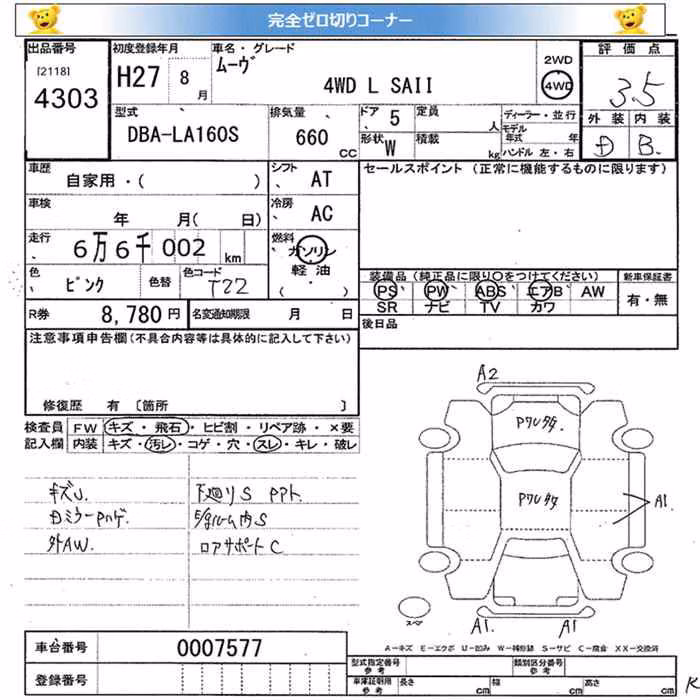 完全ゼロ切りコーナー
出品番号 初度登録年月 車名・グレード 評価点
[2118] 4303 H27 8月 ムーヴ 4WD L SAII 2WD 4WD 3.5
型式 排気量 ドア 5 定員 人 ディーラー・並行 外装 内装
DBA-LA160S 660 CC 形状 W 積載 kg モデル年式 年 ハンドル 左・右 D B
車歴 シフト AT セールスポイント (正常に機能するものに限ります)
自家用・( )
車検 冷房 AC
年 月( 日)
走行 6万6千002 km 燃料 ガソリン
軽油
・( )
色 ピンク 色替 色コード T22 装備品 (純正品に限り〇をつけてください) 新車保証書
PS PW ABS エアB AW 有・無
SR ナビ TV カワ
R券 8,780円 名変通知期限 月 日 後日品
注意事項申告欄(不具合内容等は具体的に記入して下さい)
修復歴 有 〔箇所 〕
検査員 FW キズ・飛石・ヒビ割・リペア跡・×要
記入欄 内装 キズ・汚レ・コゲ・穴・スレ・キレ・破レ
キズU. 下廻りS PPト.
Dミラーpハゲ
外AW. ロアサポートC
A2
A1.
A1. A1
スペア
A－キズ E－エクボ U－凹み W－補修跡 S－サビ C－腐食 XX－交換済
車台番号 0007577
登録番号 型式指定番号 参考 類別区分番号 参考
車庫証明用 参考 長さ cm 幅 cm 高さ cm
K